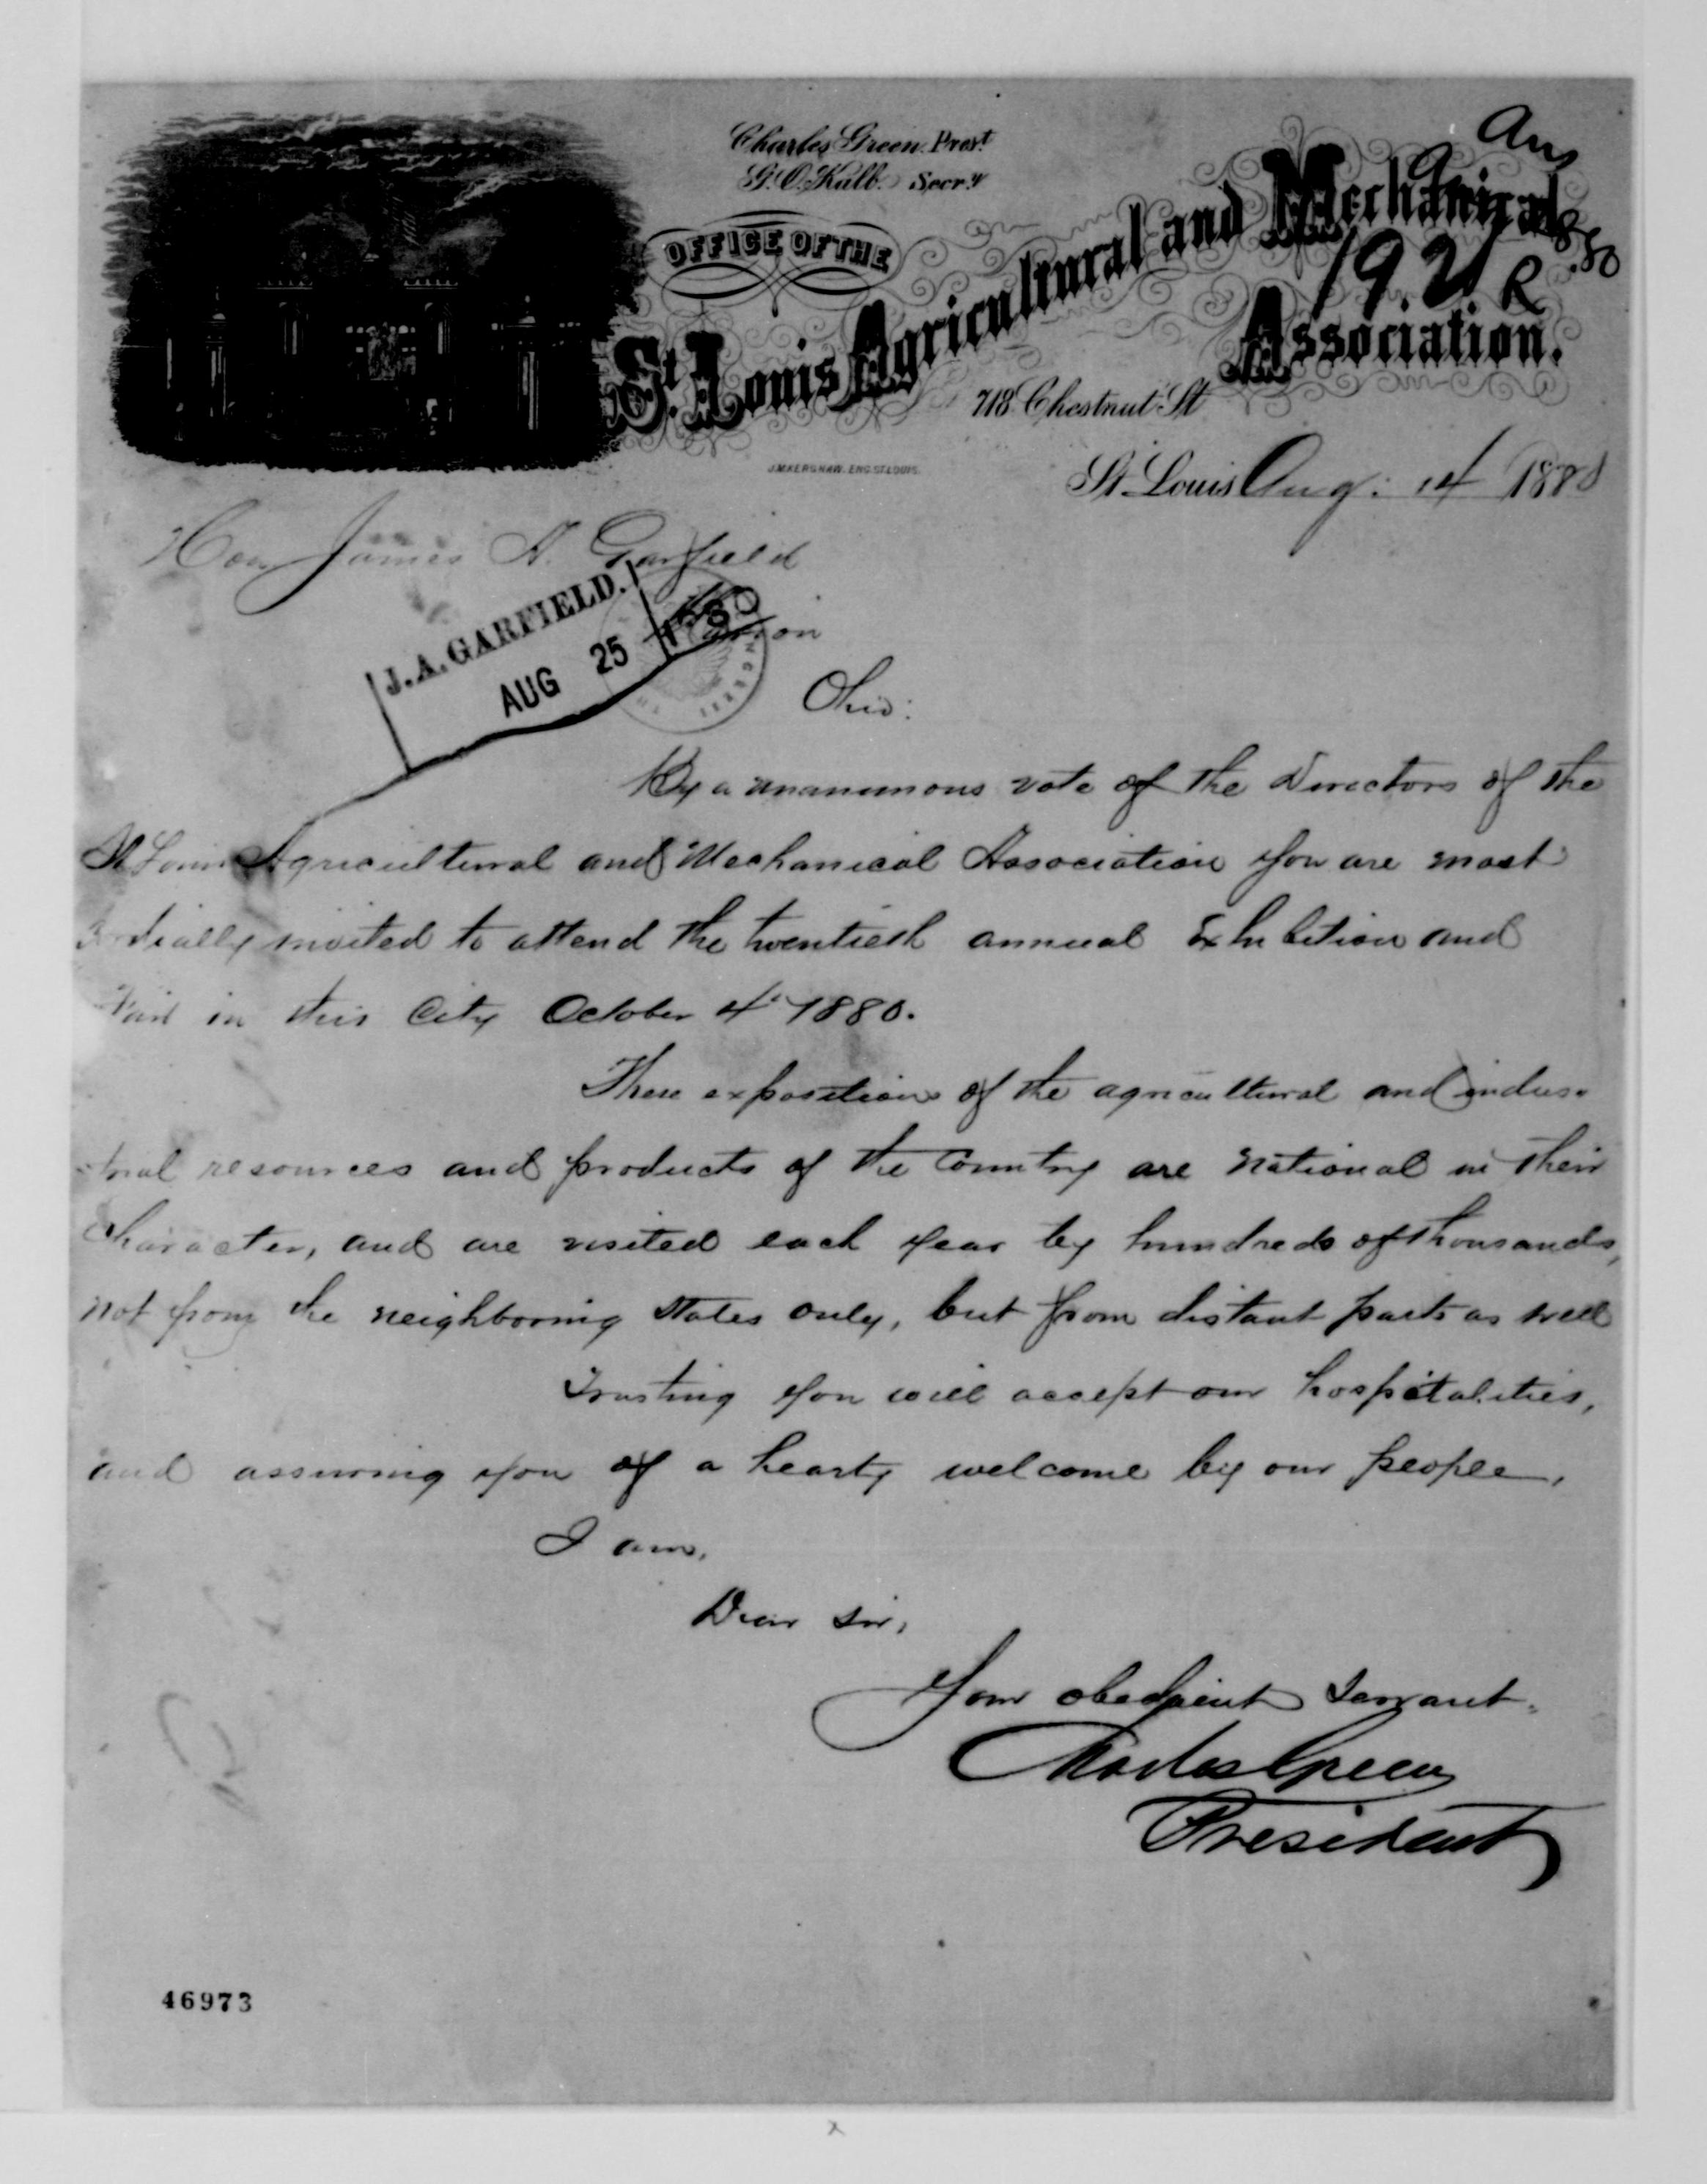 Charles Green. Prest.
G. O. Kalb. Secry.
OFFICE OF THE
St. Louis Agricultural and Mechanical
Association.
718 Chestnut St
J.M.KERSHAW. ENG. ST. LOUIS.
Ans
19.21. R
St. Louis Aug: 14 1880
Hon James A. Garfield
J. A. GARFIELD.
AUG 25 1880
Ohio:
By a unanimous vote of the Directors of the
St Louis Agricultural and Mechanical Association you are most
cordially invited to attend the twentieth annual Exhibition and
Fair in this City October 4th 1880.
These expositions of the agricultural and indus-
trial resources and products of the Country are national in their
character, and are visited each year by hundreds of thousands,
not from the neighboring States only, but from distant parts as well
Trusting you will accept our hospitalities,
and assuring you of a hearty welcome by our people,
I am,
Dear Sir,
Your obedient Servant.
Charles Green
President
46973